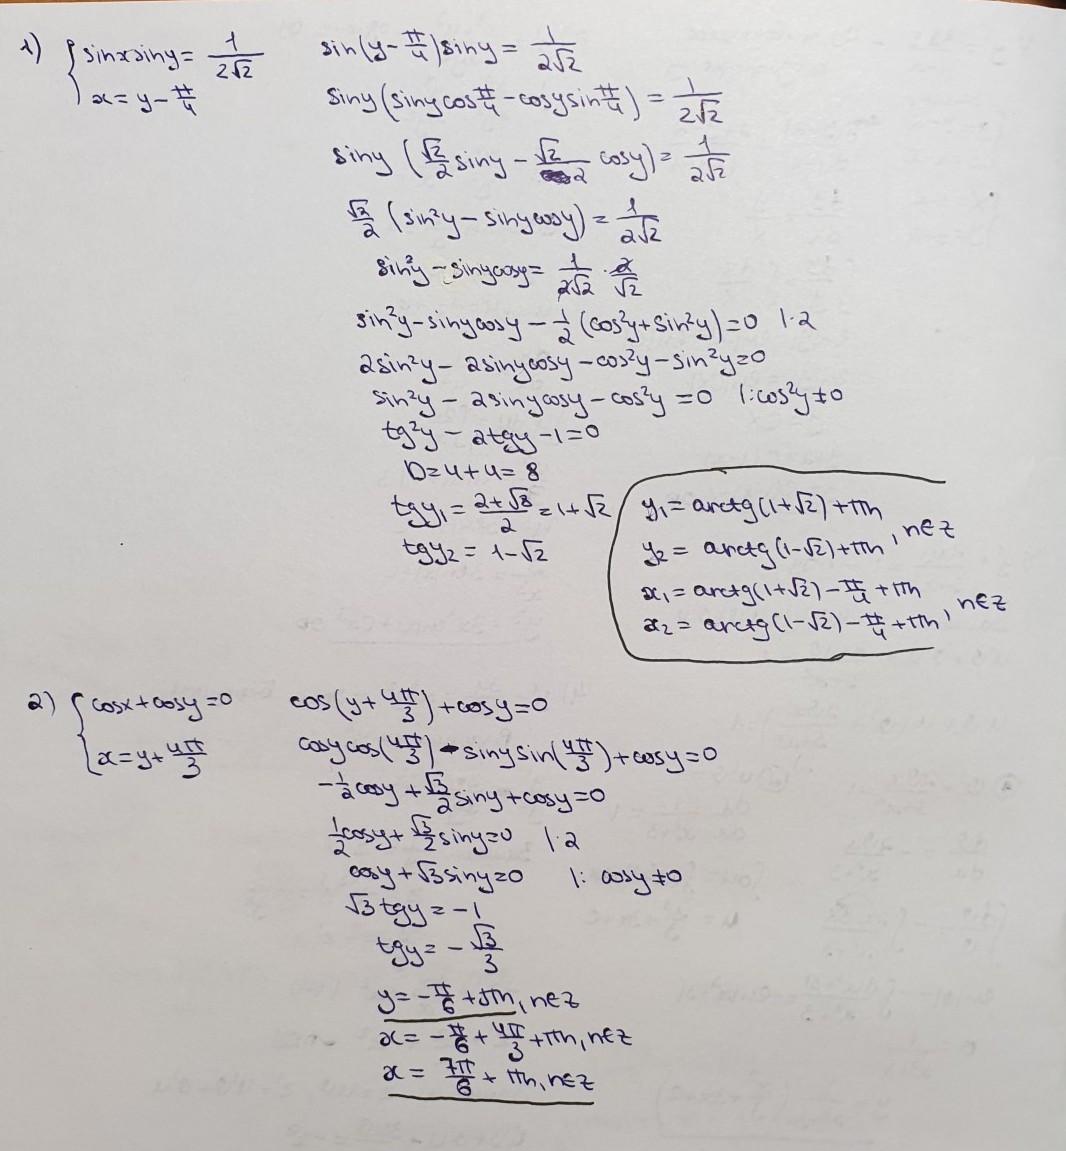 1) { sinxsiny = 1/(2√2)
x = y - π/4
sin(y - π/4)siny = 1/(2√2)
siny(sinycosπ/4 - cosysinπ/4) = 1/(2√2)
siny (√2/2 siny - √2/2 cosy) = 1/(2√2)
√2/2 (sin²y - sinycosy) = 1/(2√2)
sin²y - sinycosy = 1/(2√2) · 2/√2
sin²y - sinycosy - 1/2 (cos²y + sin²y) = 0 |·2
2sin²y - 2sinycosy - cos²y - sin²y = 0
sin²y - 2sinycosy - cos²y = 0 |:cos²y ≠ 0
tg²y - 2tgy - 1 = 0
D = 4 + 4 = 8
tgy₁ = (2+√8)/2 = 1+√2
tgy₂ = 1-√2
y₁ = arctg(1+√2) + πn
y₂ = arctg(1-√2) + πn , n∈Z
x₁ = arctg(1+√2) - π/4 + πn
x₂ = arctg(1-√2) - π/4 + πn , n∈Z
2) { cosx + cosy = 0
x = y + 4π/3
cos(y + 4π/3) + cosy = 0
cosycos(4π/3) - sinysin(4π/3) + cosy = 0
-1/2 cosy + √3/2 siny + cosy = 0
1/2 cosy + √3/2 siny = 0 |·2
cosy + √3 siny = 0 |: cosy ≠ 0
√3 tgy = -1
tgy = -√3/3
y = -π/6 + πn, n∈Z
x = -π/6 + 4π/3 + πn, n∈Z
x = 7π/6 + πn, n∈Z